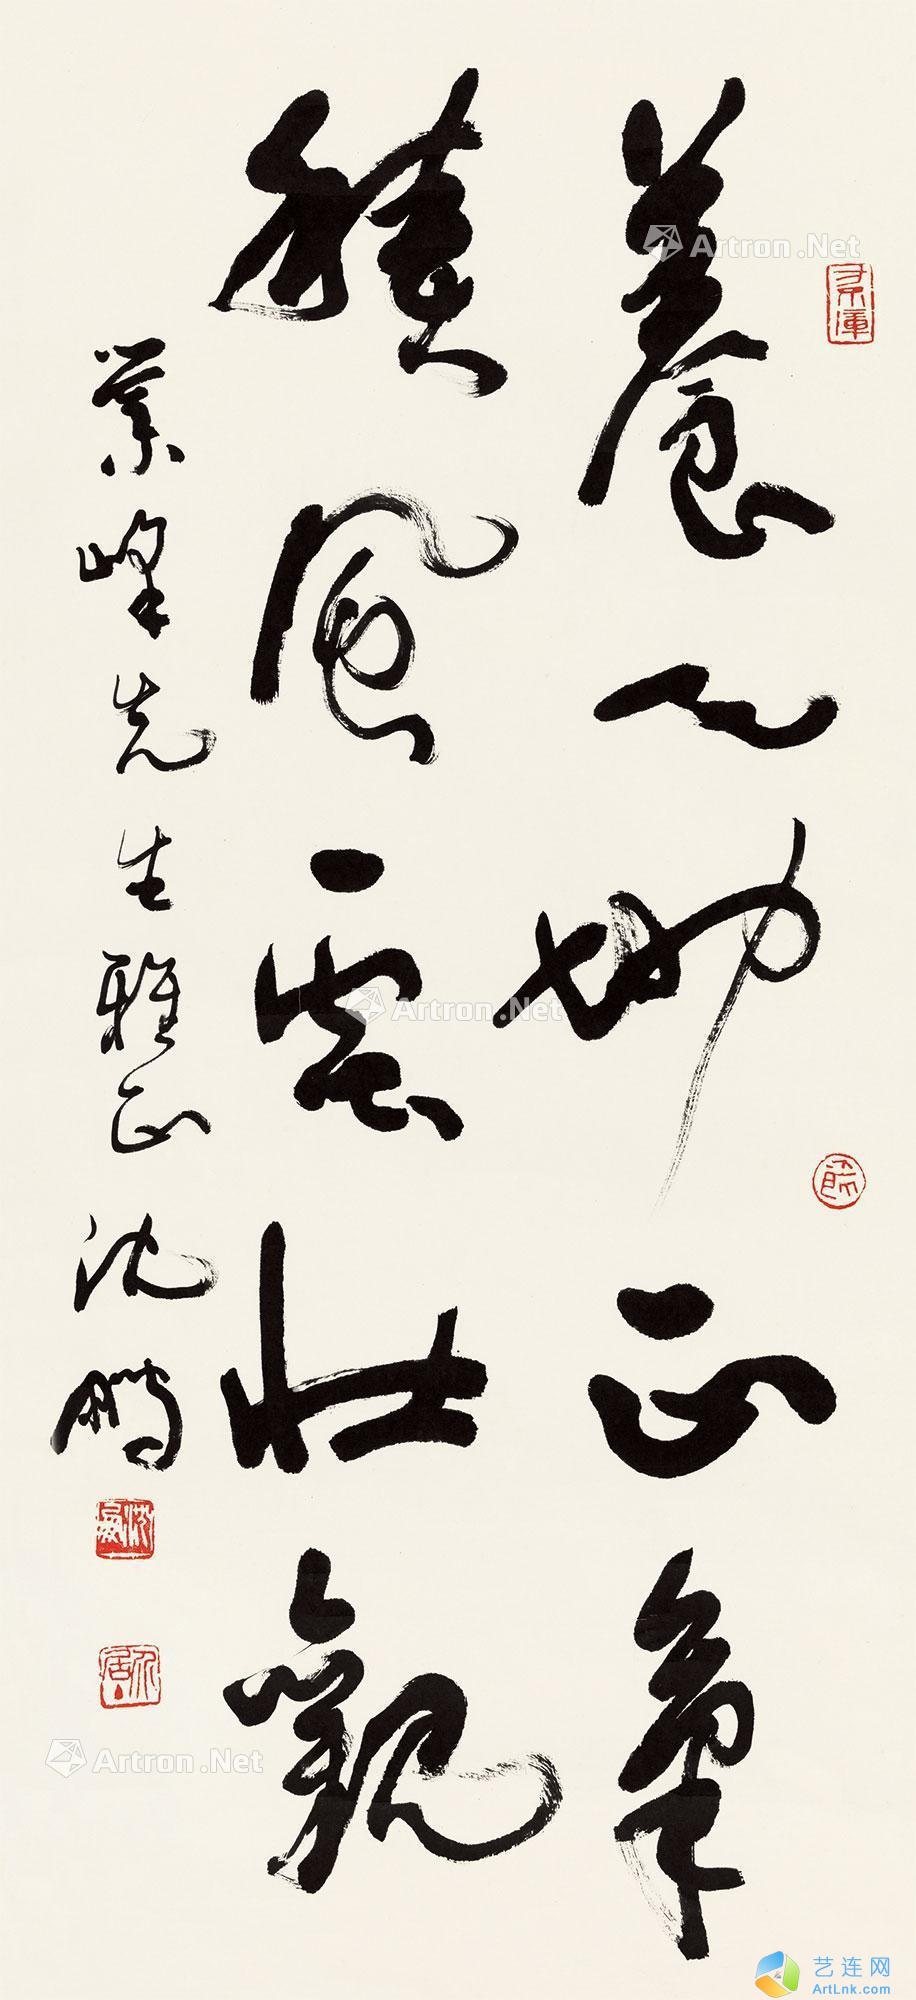 養天地正氣
積風雲壯觀
業峰先生雅正 沈鵬
Artron.Net
Artron.Net
Artron.Net
Artron.Net
艺连网
ArtLnk.com